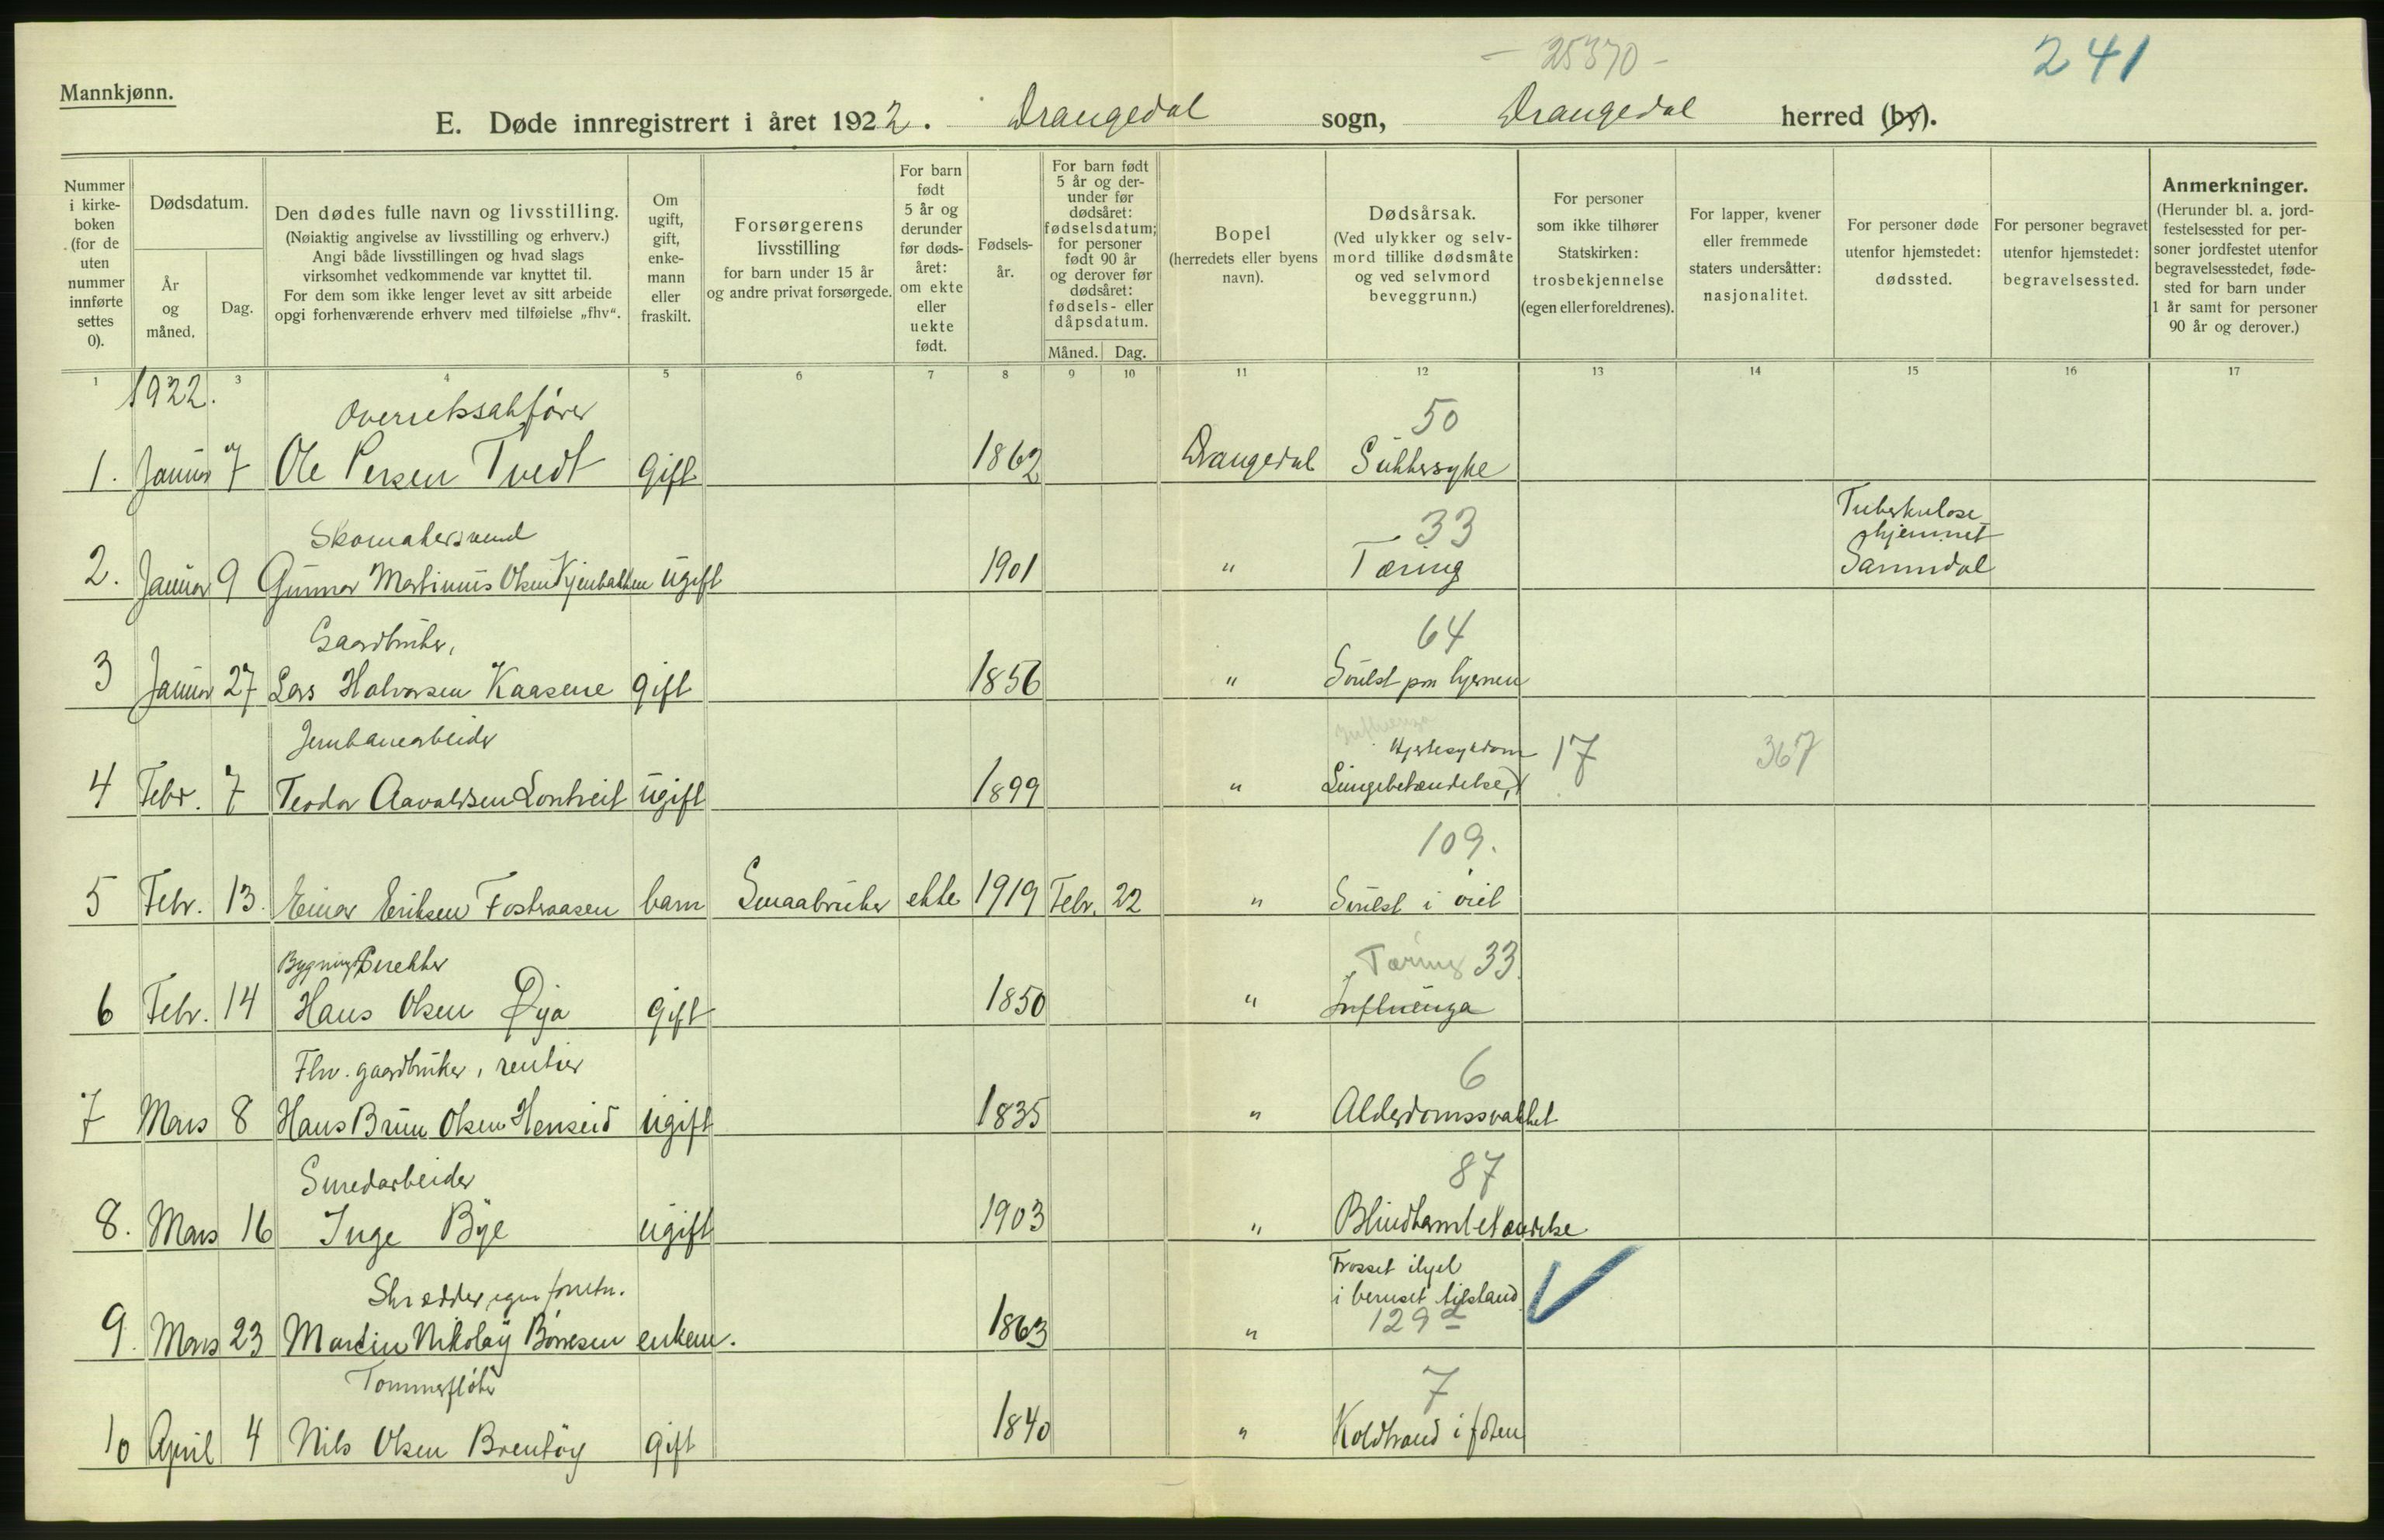 - 25370 -
241
Mannkjønn.
E. Døde innregistrert i året 1922. Drangedal sogn, Drangedal herred (by).
Nummer i kirke- boken (for de uten nummer innførte settes 0).
Dødsdatum.
År og måned.
Dag.
Den dødes fulle navn og livsstilling.
(Nøiaktig angivelse av livsstilling og erhverv.)
Angi både livsstillingen og hvad slags
virksomhet vedkommende var knyttet til.
For dem som ikke lenger levet av sitt arbeide
opgi forhenværende erhverv med tilføielse „fhv“.
Om ugift, gift, enke- mann eller fraskilt.
Forsørgerens livsstilling
for barn under 15 år
og andre privat forsørgede.
For barn født 5 år og derunder før døds- året: om ekte eller uekte født.
Fødsels- år.
For barn født 5 år og der- under før dødsåret: fødselsdatum; for personer født 90 år og derover før dødsåret: fødsels- eller dåpsdatum.
Måned. Dag.
Bopel
(herredets eller byens navn).
Dødsårsak.
(Ved ulykker og selv- mord tillike dødsmåte og ved selvmord beveggrunn.)
For personer som ikke tilhører Statskirken: trosbekjennelse (egen eller foreldrenes).
For lapper, kvener eller fremmede staters undersåtter: nasjonalitet.
For personer døde utenfor hjemstedet: dødssted.
For personer begravet utenfor hjemstedet: begravelsessted.
Anmerkninger.
(Herunder bl. a. jord- festelsessted for per- soner jordfestet utenfor begravelsesstedet, føde- sted for barn under 1 år samt for personer 90 år og derover.)
1 3 4 5 6 7 8 9 10 11 12 13 14 15 16 17
1922.
Overretssakfører 50
1. Januar 7 Ole Persen Tvedt Gift 1862 Drangedal Sukkersyke
Skomakersvend 33 Tuberkulose hjemmet
2. Januar 9 Gunnar Martinius Olsen ugift 1901 " Tæring Sanndal
Gaardbruker, 64
3 Januar 27 Lars Halvorsen Kaasene gift 1856 " Svulst paa hjernen
Jernbanearbeider Influenza Hjertesykdom 17 367
4 Febr. 7 Teodor Aavaldsen ugift 1899 " Lungebetændelse,
109.
5 Febr. 13. Einar Eriksen Fostvaasen barn Smaabruker ekte 1919 Febr. 22 " Svulst i øiet
Tæring 33.
6 Febr. 14 Hans Olsen Øya Gift 1850 " Influenza
Fhv. gaardbruker, rentier 6
7 Mars 8 Hans Brun Olsen Henseid ugift 1835 " Alderdomssvakhet
Smedarbeider 87
8. Mars 16 Inge Bye ugift 1903 " Blindtarmbetændelse
Skrædder, egen forretn. Frosset ihjel
i beruset tilstand
129 2
9. Mars 23 Martin Nikolay enkem. 1863 "
Tømmerfløter 7
10 April 4 Nils Olsen Brenløy gift 1840 " Koldbrand i foten